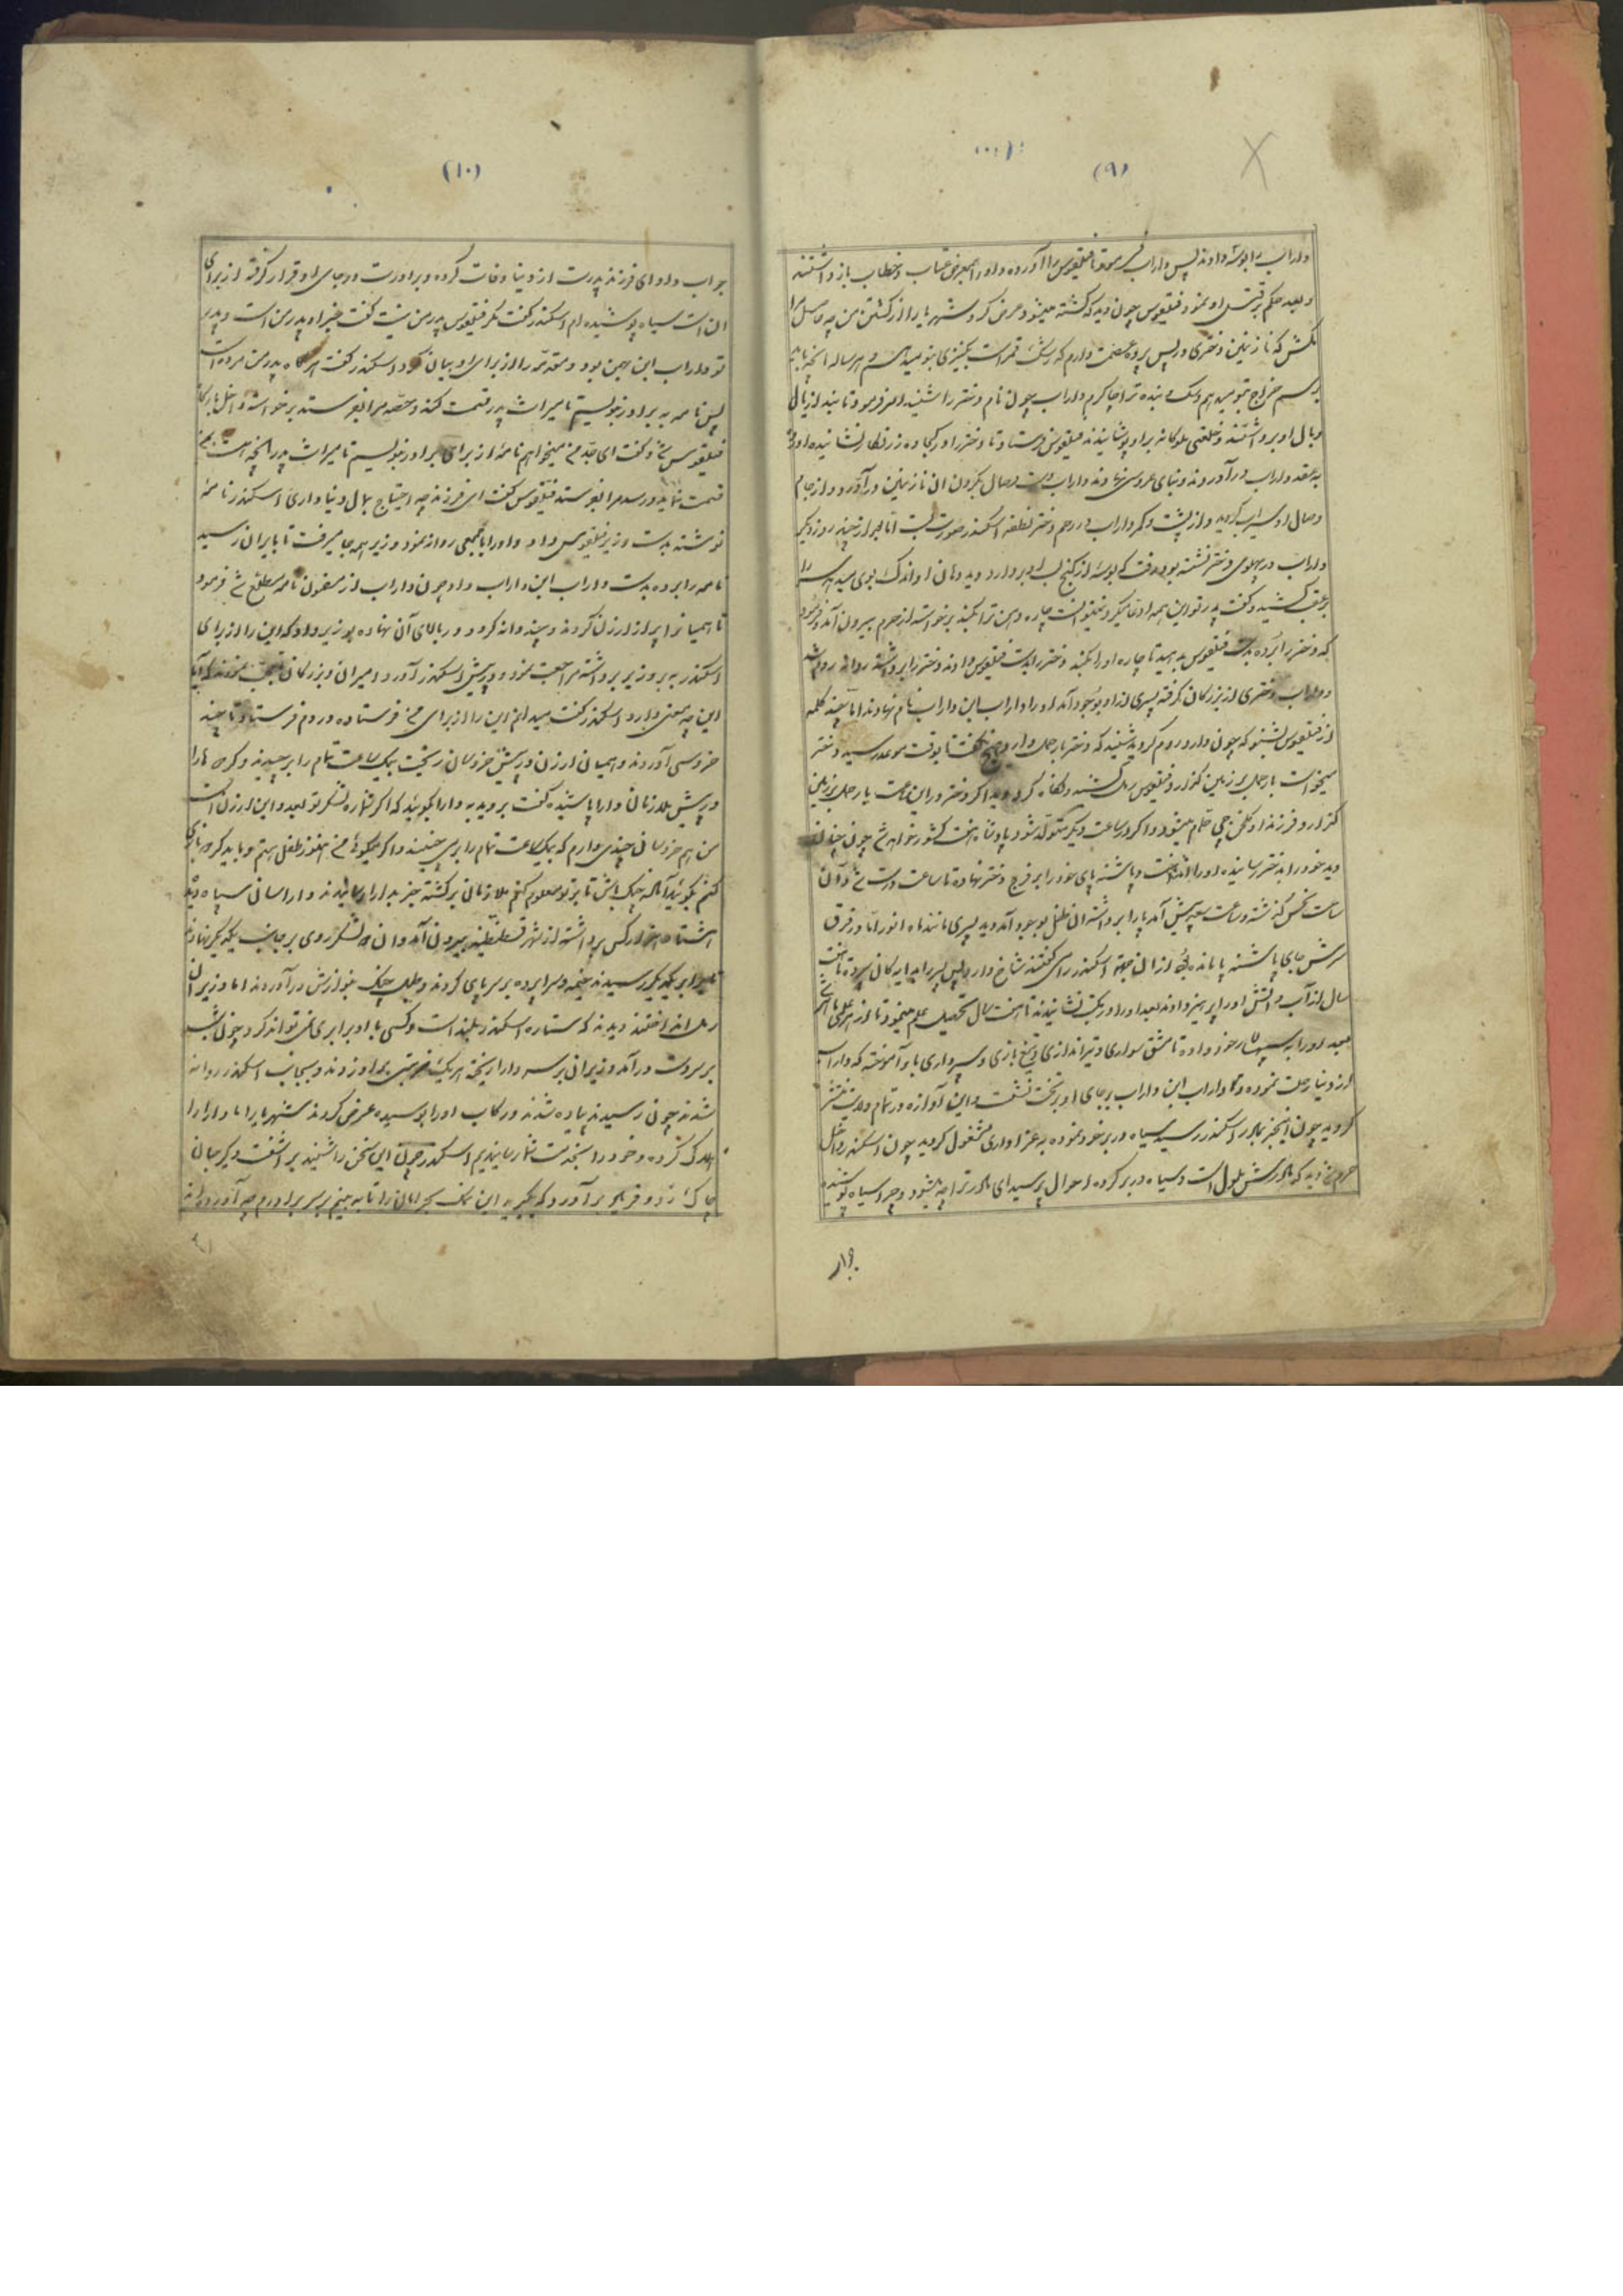 (۹)
داراب را بوسه دادند پس داراب فرمود تا فیلقوس را آورده و او را بمعرض عتاب و خطاب باز داشتند
و بعد حکم بر قتل او نمود فیلقوس چون دید که کشته میشود عرض کرد شهریارا از کشتن من چه حاصل مرا
مکش که نازنین دختری در پس پرده عصمت دارم که رشک قمر است بکنیزی بتو میدهم و هر ساله آنچه باید
برسم خراج بتو میدهم و سک و بنده ترا چاکرم داراب چون نام دختر را شنید امر فرمود تا بند از بال
و بال او برداشتند و خلعتی ملوکانه بر او پوشانیدند فیلقوس فرستاد تا دختر او را کجاوه زرنگار نشانیده آوردند
به عقد داراب در آوردند و بنای عروسی نهادند داراب دست وصال بگردن ان نازنین در آورد و از جام
وصال او سیراب گردید و از پشت و کمر داراب در رحم دختر نطفه اسکندر صورت بست اما بعد از چند روز دیگر
داراب در پهلوی دختر نشسته بود رفت که بوسه از کنج لب او بردارد دید دهان او اندک بوی میدهد سر را
بر عقب کشید و گفت پدر تو این همه ادعا میکرد نتوانست چاره دهن ترا بکند برخواسته از حرم بیرون آمد فرمود
که دختر را برده بدست فیلقوس بدهید تا چاره او را بکند دختر را بدست فیلقوس دادند و دختر را برداشته روانه روم شد
و داراب دختری از بزرگان گرفته پسری از او بوجود آمد او را داراب ابن داراب نام نهادند اما چند کلمه
از فیلقوس بشنو که چون وارد روم گردید شنید که دختر بار حمل دارد هیچ نگفت تا بوقت موعد رسید دختر
میخواست بار حمل بر زمین گذارد فیلقوس رمل کشید و نگاه کرد دید اگر دختر در این ساعت بار حمل بر زمین
گذارد فرزند او گلخن چی حمام میشود و اگر در ساعت دیگر متولد شود پادشاه هفت کشور خواهد شد چون چنان
دید خود را بدختر رسانیده او را انداخت و پاشنه پای خود را بر فرج دختر نهاده تا ساعت درست شد و آن
ساعت نحس گذشته و ساعت سعد پیش آمد پا را برداشته ان طفل بوجود آمد دید پسری مانند ماه انور اما در فرق
سرش جای پاشنه پا مانده بود از ان جهة اسکندر را می گفتند شاخ دارد پس پسر را بدایه گان سپرده تا هفت
سال از آب و آتش او را پرهیز دادند بعد او را در مکتب نشانیدند تا هفت سال تحصیل علم مینمود تا از هر علمی ماهر شد
بعد او را به سپهسالار خود داده تا مشق سواری و تیراندازی و تیغ بازی و سپرداری باو آموخته که داراب
از دنیا رحلت نموده و تا داراب ابن داراب بر جای او بر تخت نشست و این آوازه در تمام ولایت منتشر
گردید چون این خبر بمادر اسکندر رسید سیاه در بر خود نموده به عزاداری مشغول گردید چون اسکندر داخل
حرم شد دید که مادرش ملول است و سیاه در بر کرده احوال پرسید ای مادر ترا چه میشود و چرا سیاه پوشیده
جواب
(۱۰)
جواب داد ای فرزند پدرت از دنیا وفات کرده و برادرت در جای او قرار گرفته از برای
ان است سیاه پوشیده ام اسکندر گفت مگر فیلقوس پدر من نیست گفت خیر او پدر من است و پدر
تو داراب ابن بهمن بود و مقدمه را از برای او بیان کرد اسکندر گفت هرگاه پدر من مرده است
پس نامه به برادر بنویسم تا میراث پدر قسمت کند و حصه مرا بفرستد برخواسته داخل بارگاه
فیلقوس شد و گفت ای جد من میخواهم نامه از برای برادر بنویسم تا میراث پدر آنچه هست بمن
قسمت نماید و رسد مرا بفرستد فیلقوس گفت ای فرزند چه احتیاج بمال دنیا داری اسکندر نامه
نوشته بدست وزیر فیلقوس داد و او را با جمعی روانه نمود وزیر همه جا میرفت تا بایران رسید
نامه را برده بدست داراب ابن داراب داد چون داراب از مضمون نامه مطلع شد فرمود
تا همیانرا پر از ارزن کردند و سپند دانه کرد و در بالای آن نهاده بوزیر داد که این را از برای
اسکندر به بر وزیر برداشته مراجعت نمود و در پیش اسکندر آورد امیران و بزرگان تعجب نمودند که آیا
این چه معنی دارد اسکندر گفت میدانم این را از برای من فرستاده در دم فرستاد تا چند
خروسی آوردند و همیان ارزن در پیش خروسان ریخت بیک ساعت تمام را برچیدند و کره مارا
در پیش ملازمان دارا پاشیده گفت بروید به دارا بگوئید که اگر شماره لشکر تو بعدد این ارزن است
من هم خروسان چندی دارم که بیک ساعت تمام را برمی چینند و اگر میگوید من هنوز طفلی هستم و باید گره بازی
کنم بگوئید آماده جنک باش تا بتو معلوم کنم ملازمان برگشته خبر بدارا رسانیدند دارا سانی سپاه دید
هشتاد هزار کس برداشته از شهر قسطنطنیه بیرون آمد و ان دو لشکر روی بر جانب یکدیگر نهادند
تا برابر یکدیگر رسیدند خیمه و سراپرده بر سر پای کردند و طبل جنک بنوازش در آوردند اما وزیران
رمل انداختند دیدند که ستاره اسکندر بلند است و کسی با او برابری نمی تواند کرد چون شب
بر سر دست در آمد وزیران بر سر دارا ریخته هر یک ضربتی بر او زدند و بجانب اسکندر روانه
شدند چون رسیدند پیاده شدند و رکاب او را بوسیده عرض کردند شهریارا ما دارا را
هلاک کرده و خود را بخدمت شما رسانیدیم اسکندر چون این سخن را شنید بر آشفت و گریبان
چاک زد و فریاد بر آورد که بگیرید این نمک بحرامان را تا به بینم بر سر برادرم چه آورده اند